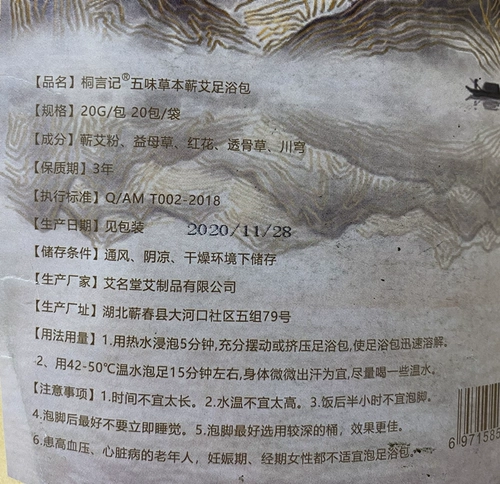 【品名】桐言记®五味草本蕲艾足浴包
【规格】20G/包 20包/袋
【成分】蕲艾粉、益母草、红花、透骨草、川穹
【保质期】3年
【执行标准】Q/AM T002-2018
【生产日期】见包装 2020/11/28
【储存条件】通风、阴凉、干燥环境下储存
【生产厂家】艾名堂艾制品有限公司
【生产厂址】湖北蕲春县大河口社区五组79号
【用法用量】1.用热水浸泡5分钟,充分摆动或挤压足浴包,使足浴包迅速溶解。
2、用42-50℃温水泡足15分钟左右,身体微微出汗为宜,尽量喝一些温水。
【注意事项】1.时间不宜太长。2.水温不宜太高。3.饭后半小时不宜泡脚。
4.泡脚后最好不要立即睡觉。5.泡脚最好选用较深的桶，效果更佳。
6.患高血压、心脏病的老年人，妊娠期、经期女性都不适宜泡足浴包。
6 971585